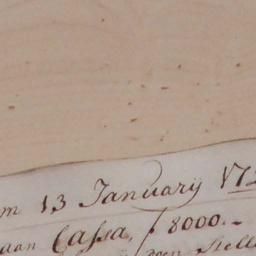 m 13 January 172
aan Cassa, f 8000.-